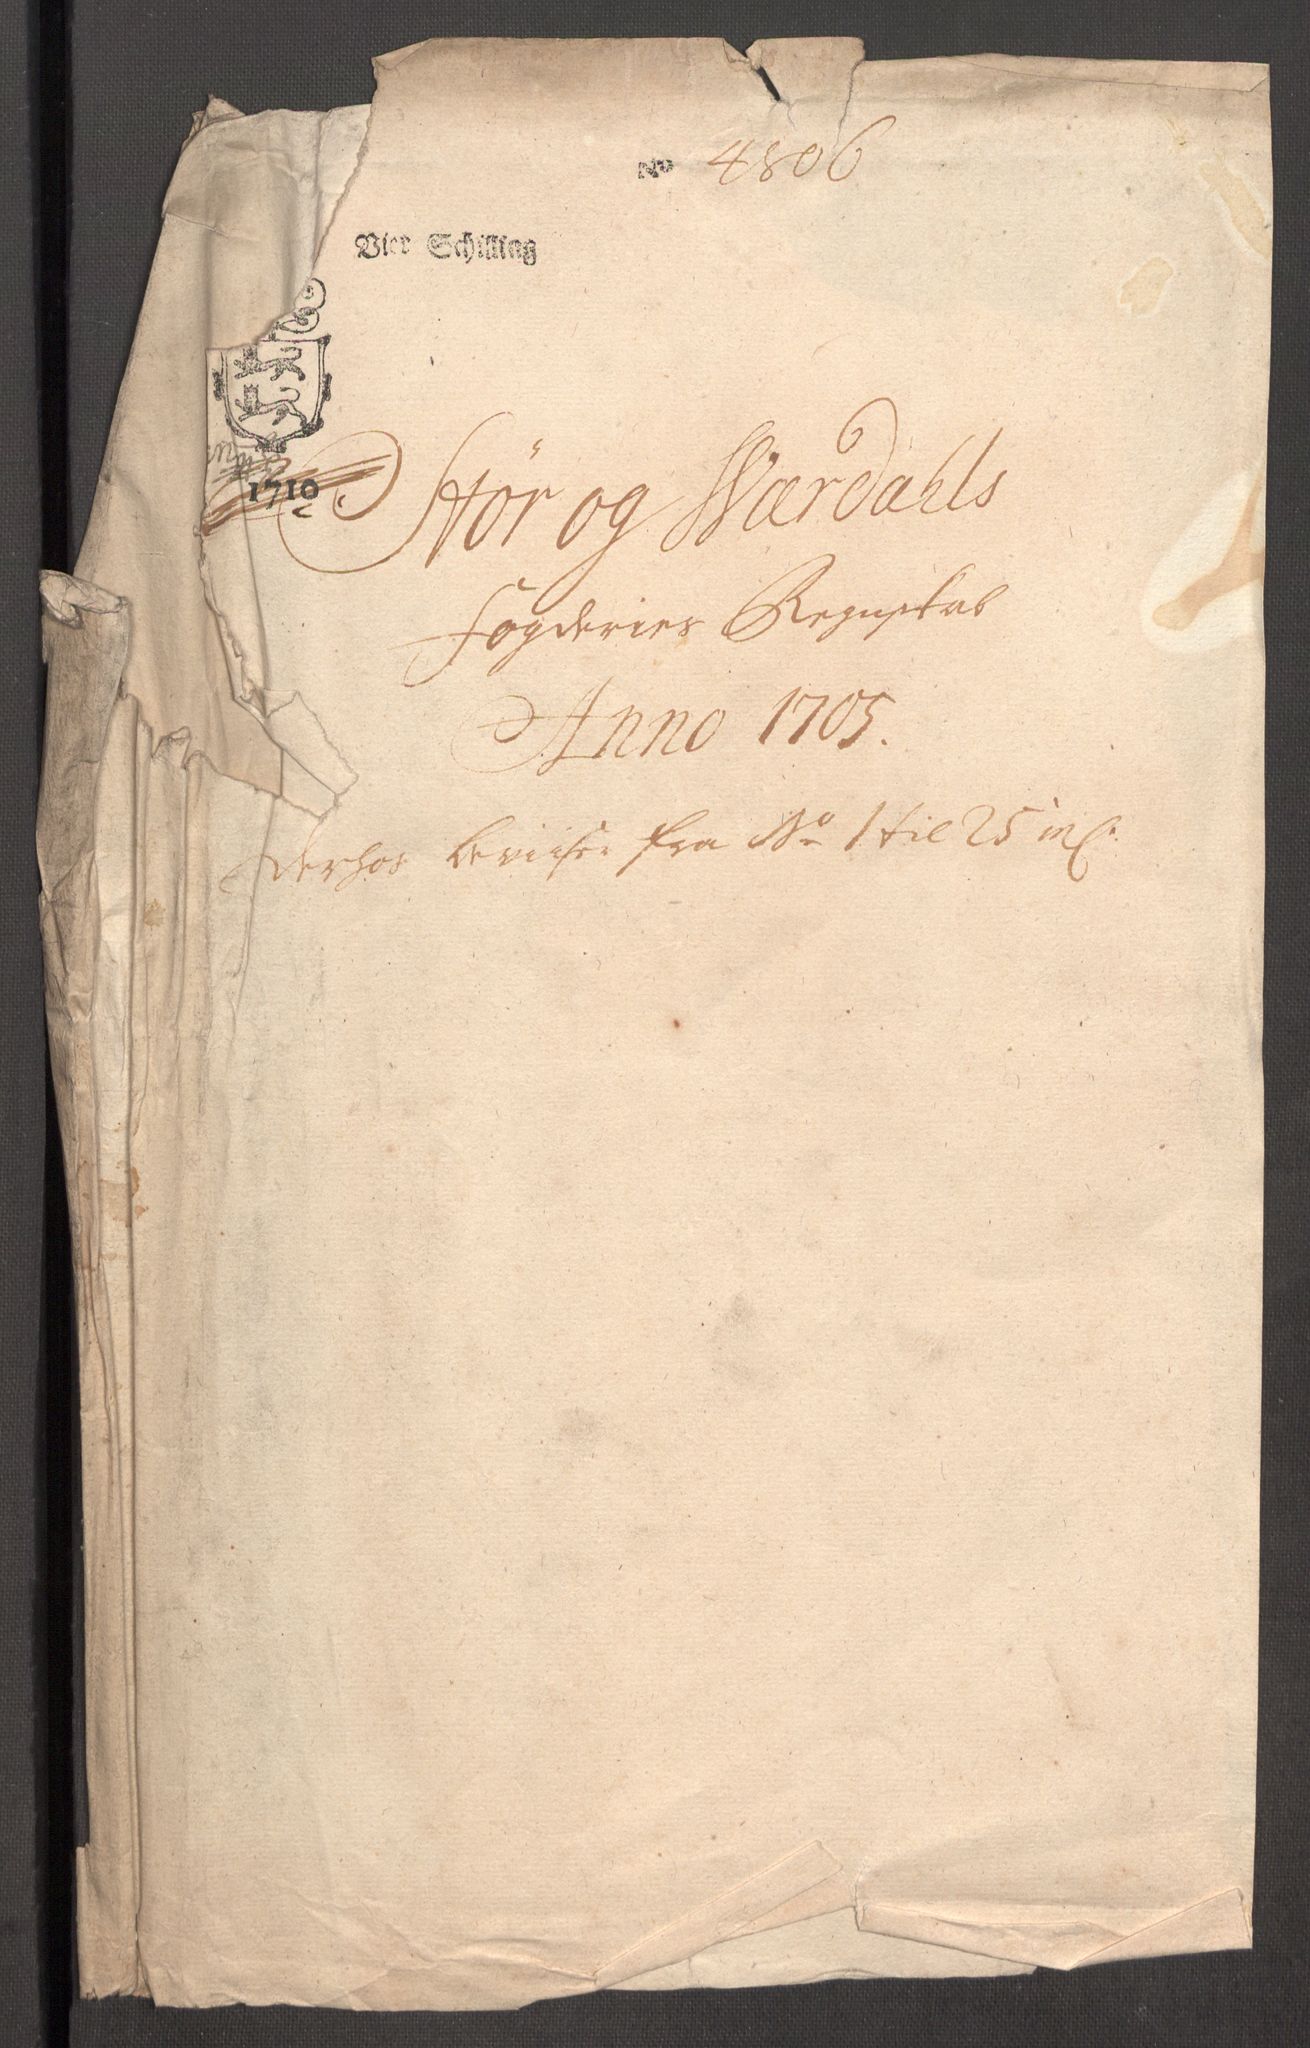 No 4806
Vier Schilling
1710
Stör og Værdahls
Fogderies Regnskab
Anno 1705.
Derhos beviiser fra No 1 til 25 incl.